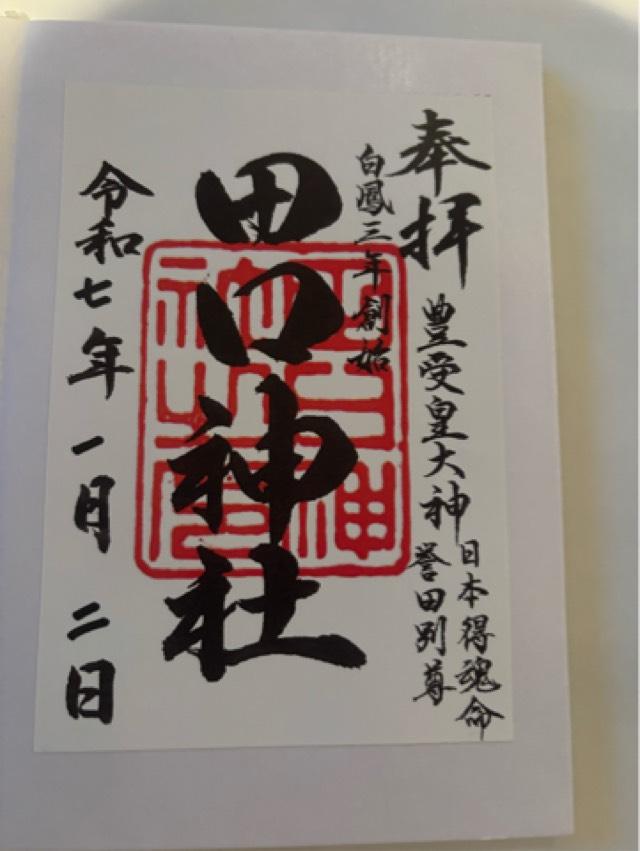 奉拝
豊受皇大神
日本得魂命
誉田別尊
白鳳三年創始
田口神社
令和七年一月二日